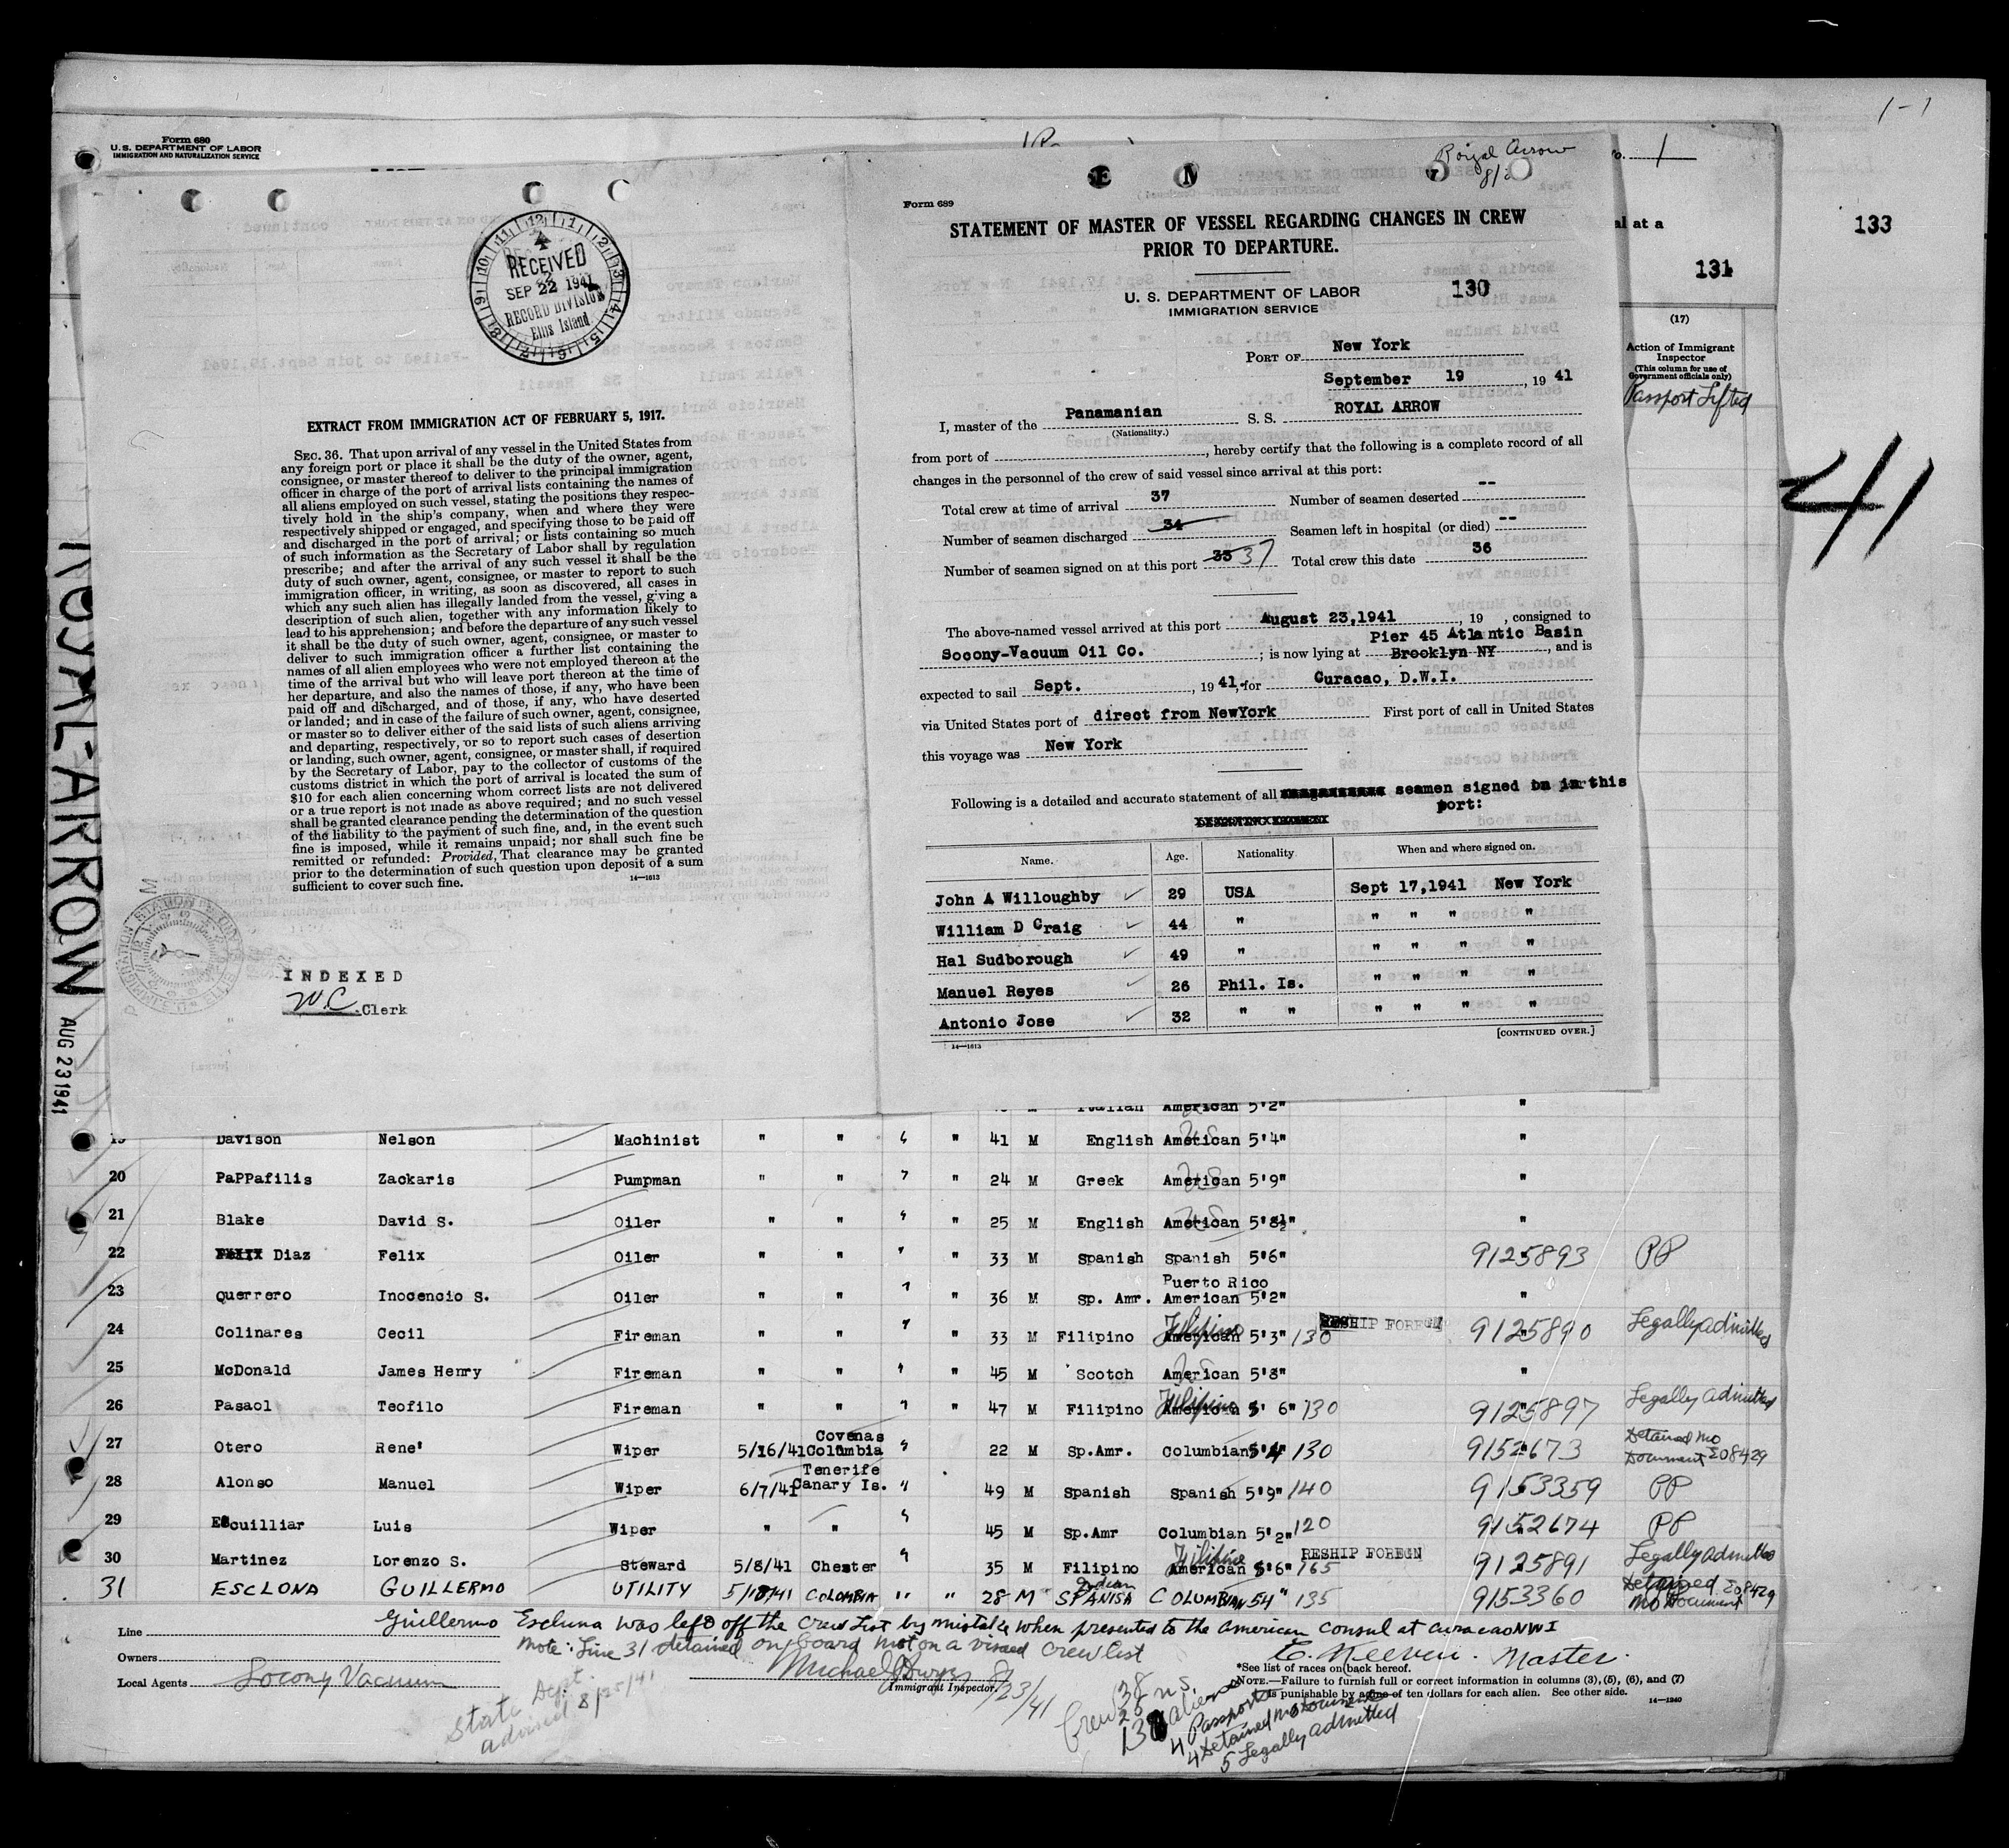 1-1
133
Form 680
U. S. DEPARTMENT OF LABOR
IMMIGRATION AND NATURALIZATION SERVICE
1
al at a
131
(17)
Action of Immigrant
Inspector
(This column for use of
Government officials only)
Passport Lifted
41
ROYAL-ARROW AUG 23 1941
RECEIVED
SEP 22 1941
RECORD DIVISION
Ellis Island
EXTRACT FROM IMMIGRATION ACT OF FEBRUARY 5, 1917.
SEC. 36. That upon arrival of any vessel in the United States from
any foreign port or place it shall be the duty of the owner, agent,
consignee, or master thereof to deliver to the principal immigration
officer in charge of the port of arrival lists containing the names of
all aliens employed on such vessel, stating the positions they respec-
tively hold in the ship's company, when and where they were
respectively shipped or engaged, and specifying those to be paid off
and discharged in the port of arrival; or lists containing so much
of such information as the Secretary of Labor shall by regulation
prescribe; and after the arrival of any such vessel it shall be the
duty of such owner, agent, consignee, or master to report to such
immigration officer, in writing, as soon as discovered, all cases in
which any such alien has illegally landed from the vessel, giving a
description of such alien, together with any information likely to
lead to his apprehension; and before the departure of any such vessel
it shall be the duty of such owner, agent, consignee, or master to
deliver to such immigration officer a further list containing the
names of all alien employees who were not employed thereon at the
time of the arrival but who will leave port thereon at the time of
her departure, and also the names of those, if any, who have been
paid off and discharged, and of those, if any, who have deserted
or landed; and in case of the failure of such owner, agent, consignee,
or master so to deliver either of the said lists of such aliens arriving
and departing, respectively, or so to report such cases of desertion
or landing, such owner, agent, consignee, or master shall, if required
by the Secretary of Labor, pay to the collector of customs of the
customs district in which the port of arrival is located the sum of
$10 for each alien concerning whom correct lists are not delivered
or a true report is not made as above required; and no such vessel
shall be granted clearance pending the determination of the question
of the liability to the payment of such fine, and, in the event such
fine is imposed, while it remains unpaid; nor shall such fine be
remitted or refunded: Provided, That clearance may be granted
prior to the determination of such question upon deposit of a sum
sufficient to cover such fine. 14—1613
INDEXED
W.C. Clerk
Royal Arrow
Form 689
STATEMENT OF MASTER OF VESSEL REGARDING CHANGES IN CREW
PRIOR TO DEPARTURE.
U. S. DEPARTMENT OF LABOR
IMMIGRATION SERVICE
130
PORT OF New York
September 19, 1941
I, master of the Panamanian S. S. ROYAL ARROW
(Nationality.)
from port of , hereby certify that the following is a complete record of all
changes in the personnel of the crew of said vessel since arrival at this port:
Total crew at time of arrival 37 Number of seamen deserted --
Number of seamen discharged 34 Seamen left in hospital (or died) --
Number of seamen signed on at this port 33 37 Total crew this date 36
The above-named vessel arrived at this port August 23,1941, 19 , consigned to
Socony-Vacuum Oil Co. ; is now lying at Pier 45 Atlantic Basin Brooklyn NY, and is
expected to sail Sept. , 1941, for Curacao, D.W.I.
via United States port of direct from NewYork First port of call in United States
this voyage was New York
Following is a detailed and accurate statement of all seamen signed on in this
port:
Name. Age. Nationality When and where signed on.
John A Willoughby 29 USA Sept 17,1941 New York
William D Craig 44 " " " " "
Hal Sudborough 49 " " " " "
Manuel Reyes 26 Phil. Is. " " " "
Antonio Jose 32 " " " " " "
[CONTINUED OVER.]
14—1613
Italian American 5'2" "
19 Davison Nelson Machinist " " " " 41 M English American 5'4" "
20 PaPPafilis Zackaris Pumpman " " " " 24 M Greek American 5'9" "
21 Blake David S. Oiler " " " " 25 M English American 5'8½" "
22 Diaz Felix Oiler " " " " 33 M Spanish Spanish 5'6" 9125893 PP
23 Querrero Inocencio S. Oiler " " " " 36 M Sp. Amr. Puerto Rico American 5'2" "
24 Colinares Cecil Fireman " " " " 33 M Filipino American Filipino 5'3" 130 RESHIP FOREGN 9125890 Legally admitted
25 McDonald James Henry Fireman " " " " 45 M Scotch American 5'8" "
26 Pasaol Teofilo Fireman " " " " 47 M Filipino American Filipino 5' 6" 130 9125897 Legally admitted
27 Otero Rene' Wiper 5/16/41 Covenas Columbia " 22 M Sp.Amr. Columbian 5'4" 130 9152673 Detained no Document 208429
28 Alonso Manuel Wiper 6/7/41 Tenerife Canary Is. " 49 M Spanish Spanish 5'9" 140 9153359 PP
29 Escuilliar Luis Wiper " " " 45 M Sp.Amr Columbian 5'2" 120 9152674 PP
30 Martinez Lorenzo S. Steward 5/8/41 Chester " 35 M Filipino American Filipino 5'6" 165 RESHIP FOREGN 9125891 Legally admitted
31 ESCLONA GUILLERMO UTILITY 5/18/41 COLOMBIA " " 28 M SPANISH Indian COLUMBIAN 54" 135 9153360 Detained no Document 208429
Guillermo Escluna was left off the crew list by mistake when presented to the American Consul at Curacao NWI
Note: Line 31 detained on board not on a visaed crew list
E. Keeven. Master.
Line
Owners
Local Agents Socony Vacuum
Immigrant Inspector. 8/23/41
*See list of races on back hereof.
NOTE.—Failure to furnish full or correct information in columns (3), (5), (6), and (7)
is punishable by a fine of ten dollars for each alien. See other side.
14—1240
State Dept.
advised 8/25/41
Crew 38
25 U.S.
13 aliens
4 Passports
4 Detained no Document
5 Legally admitted